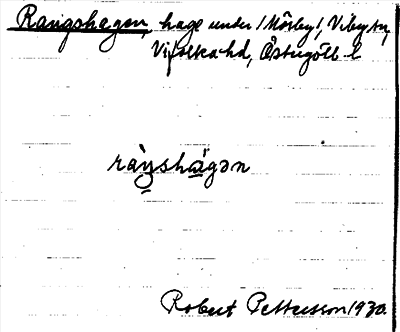 Rangshagen, hage under /Mörby/, Viby sn,
Vifolka hd, Östergötl. l
raŋshagən
Robert Pettersson 1930.